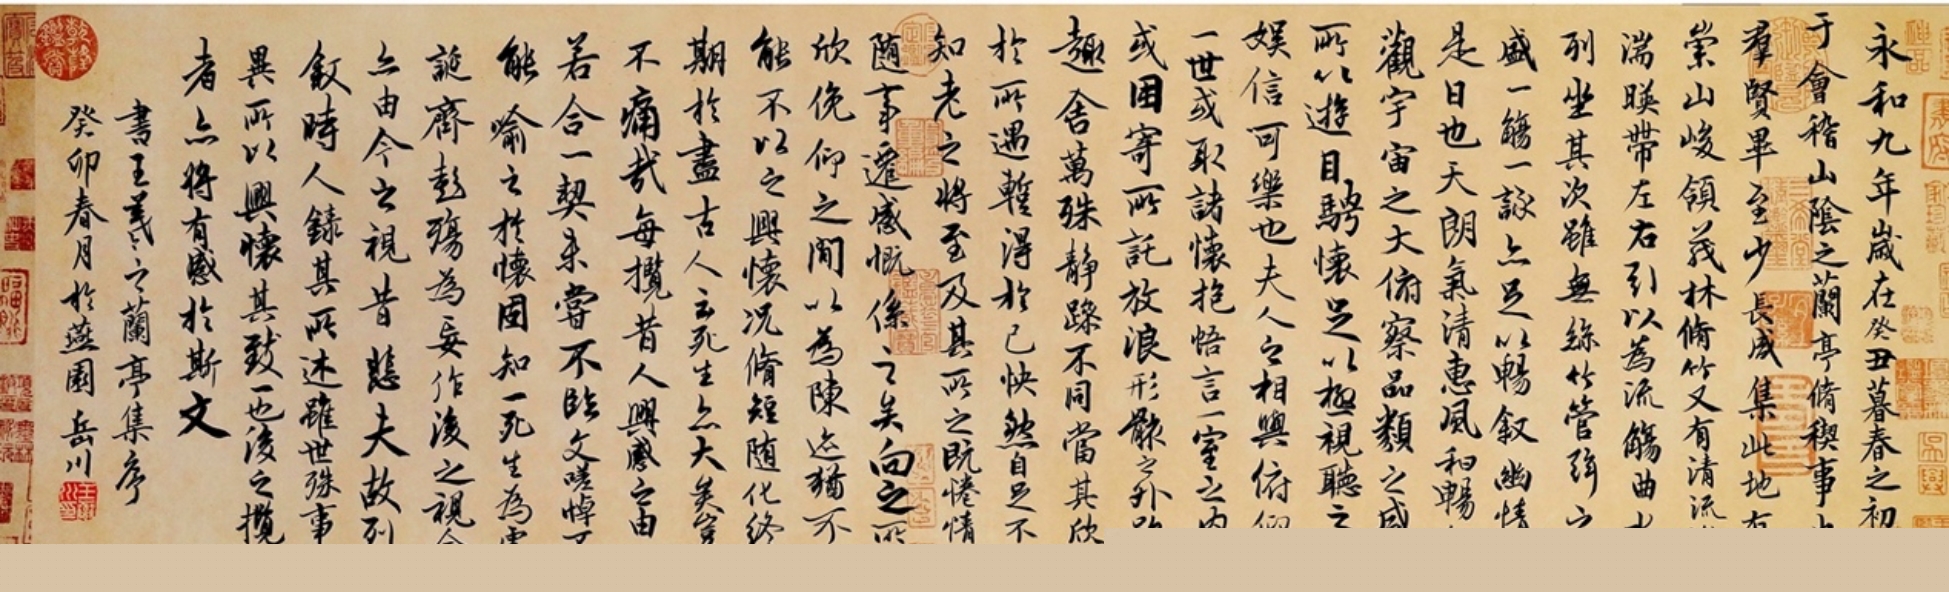 永和九年歲在癸丑暮春之初
于會稽山陰之蘭亭脩稧事
羣賢畢至少長咸集此地有
崇山峻領茂林脩竹又有清流
湍暎帶左右引以為流觴曲水
列坐其次雖無絲竹管弦之
盛一觴一詠亦足以暢叙幽情
是日也天朗氣清惠風和暢
觀宇宙之大俯察品類之盛
所以遊目騁懷足以極視聽之
娛信可樂也夫人之相與俯仰
一世或取諸懷抱悟言一室之內
或因寄所託放浪形骸之外雖
趣舍萬殊静躁不同當其欣
於所遇暫得於己怏然自足不
知老之將至及其所之既惓情
随事遷感慨係之矣向之所
欣俛仰之閒以為陳迹猶不
能不以之興懷况脩短随化終
期於盡古人云死生亦大矣豈
不痛哉每攬昔人興感之由
若合一契未嘗不臨文嗟悼不
能喻之於懷固知一死生為虛
誕齊彭殤為妄作後之視今
亦由今之視昔悲夫故列
叙時人錄其所述雖世殊事
異所以興懷其致一也後之攬
者亦將有感於斯文
書王羲之蘭亭集序
癸卯春月於燕園岳川
乾隆鑑賞